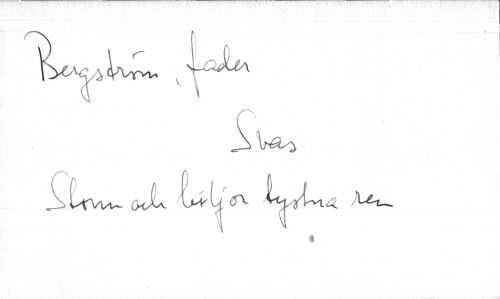 Bergström, fader
Svas
Storm och böljor tystna ren